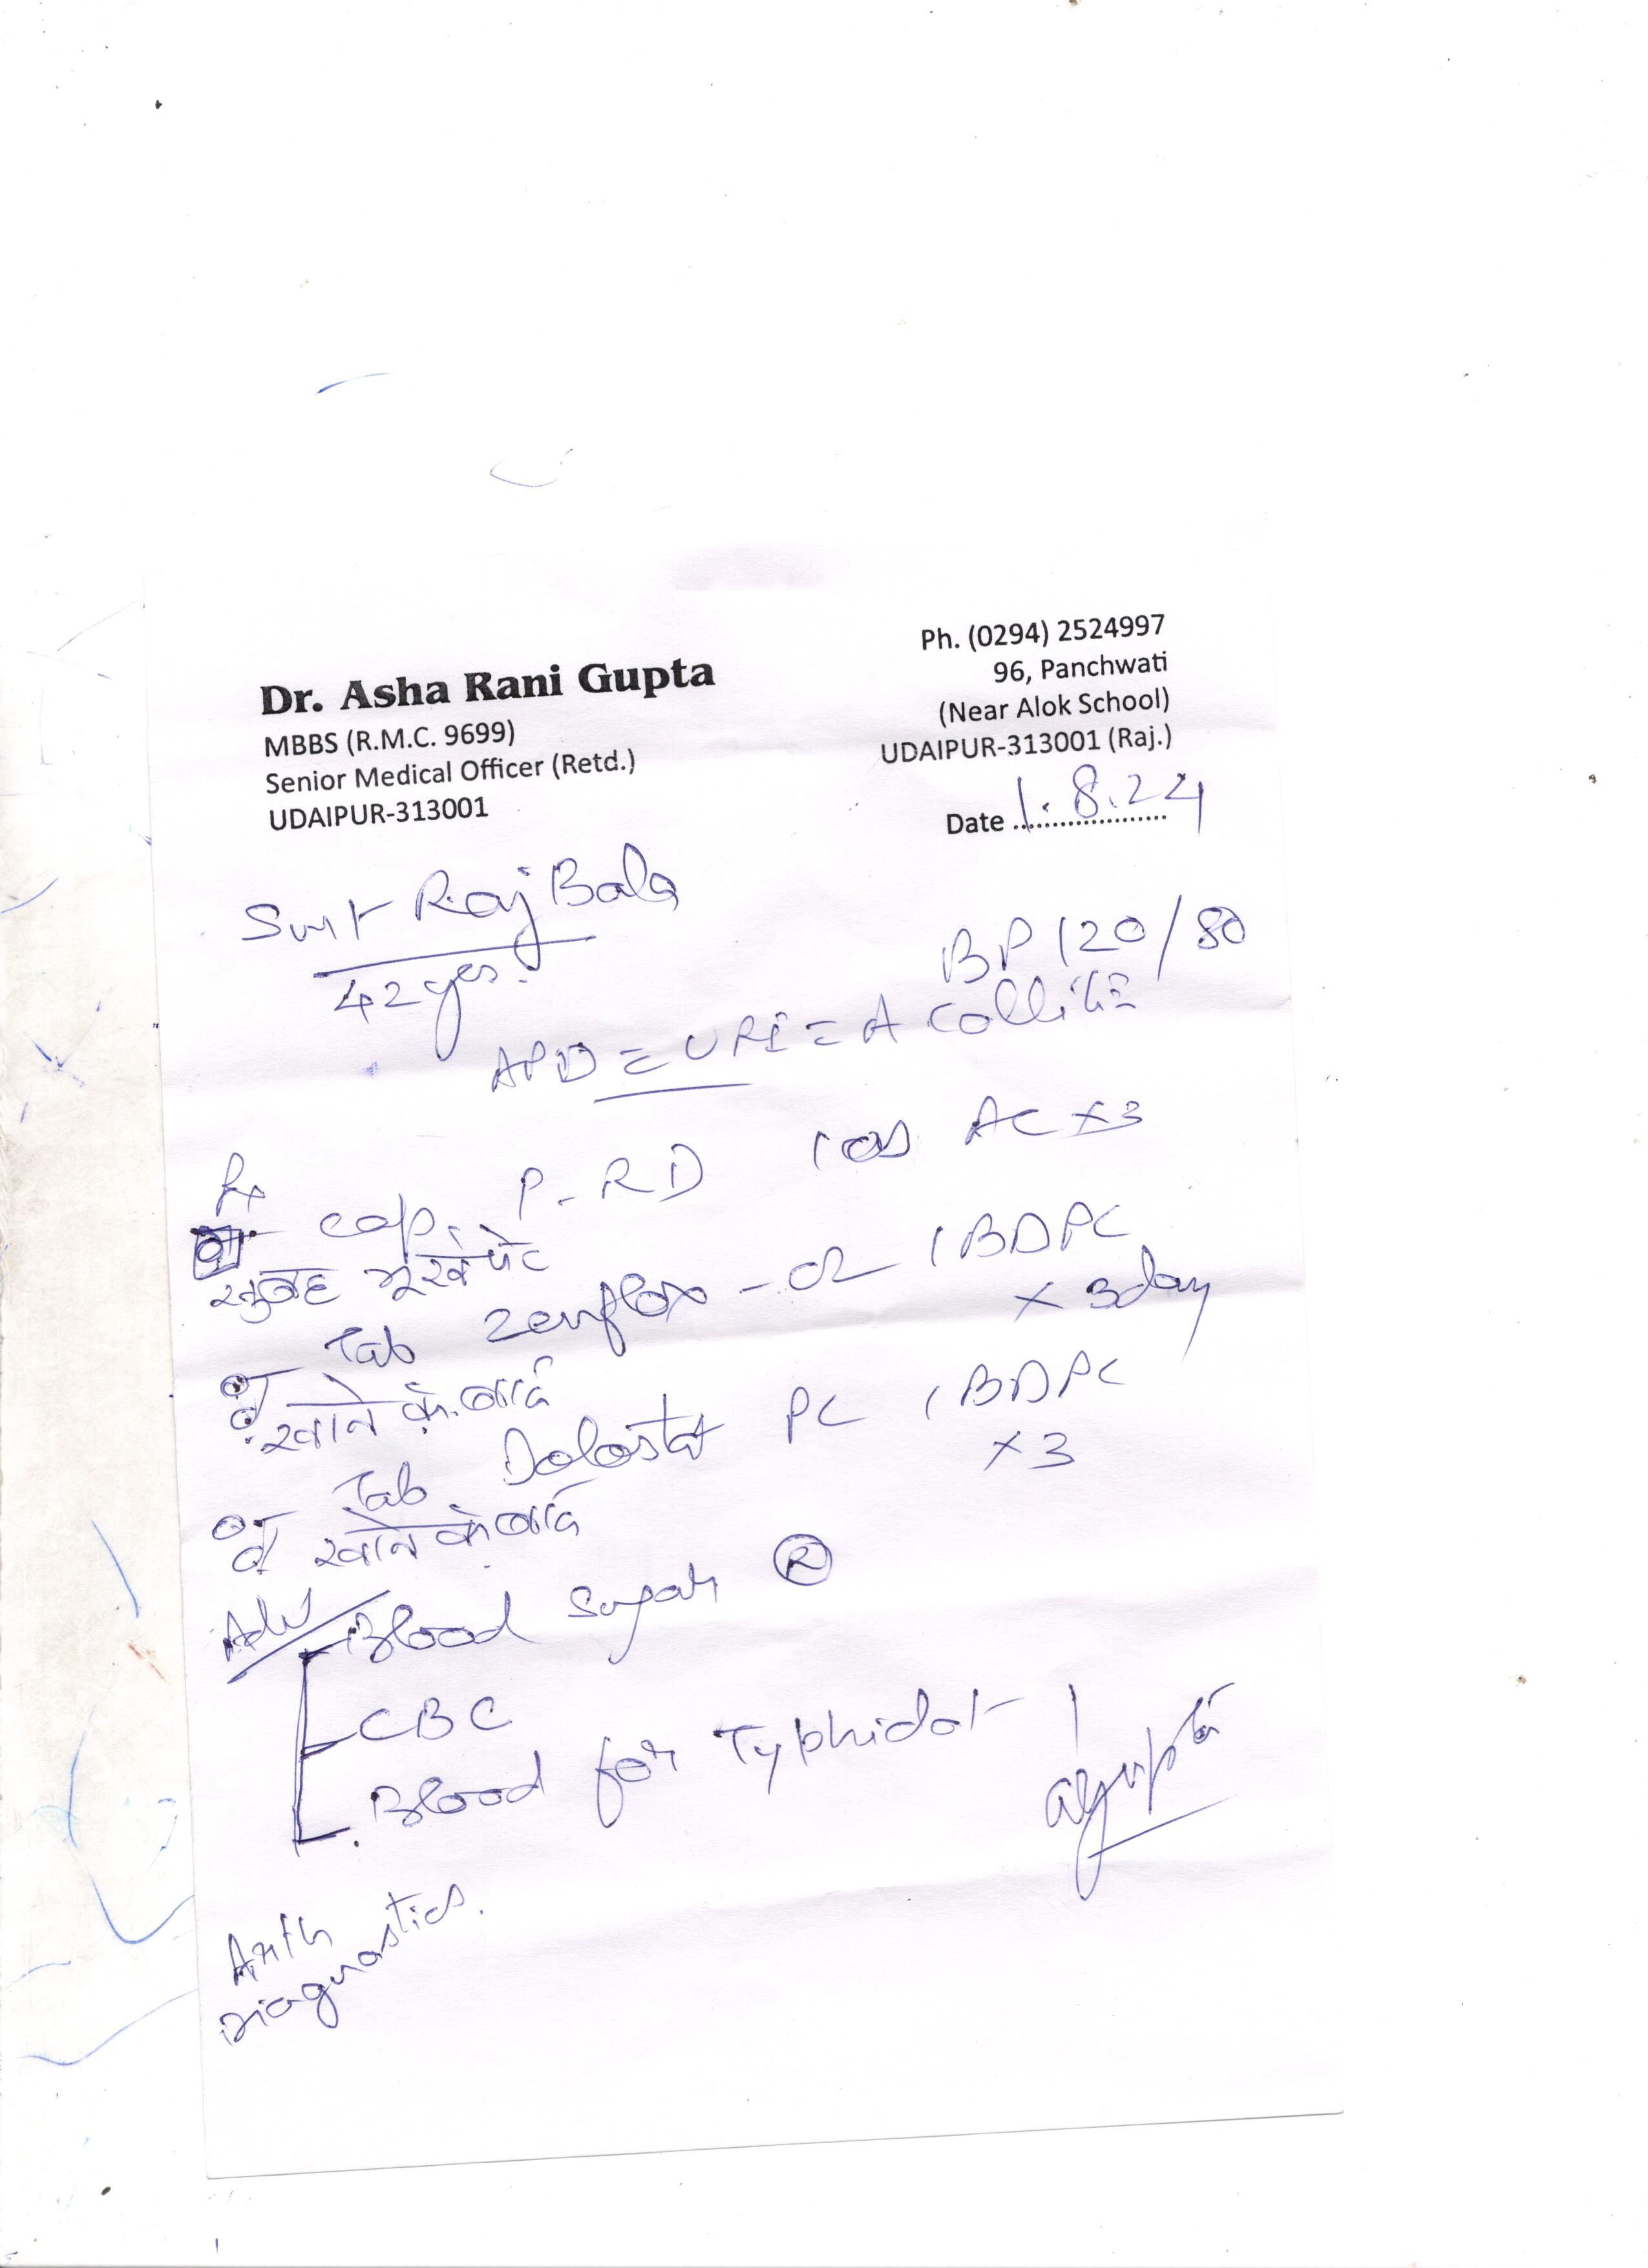 Dr. Asha Rani Gupta
MBBS (R.M.C. 9699)
Senior Medical Officer (Retd.)
UDAIPUR-313001
Ph. (0294) 2524997
96, Panchwati
(Near Alok School)
UDAIPUR-313001 (Raj.)
Date 1.8.24
Smt Raj Bala
42 yrs.
BP 120/80
APD = URI = A Collitis
Rx
cap. P-RD 1 OD AC x3
सुबह भूखे पेट
Tab Zenflox-OZ 1 BDPC
x 3day
खाने के बाद
Tab Dolostat PC 1 BDPC
x3
खाने के बाद
Adv
Blood Sugar R
CBC
Blood for Typhidot
agupta
Arth
Diagnostics.